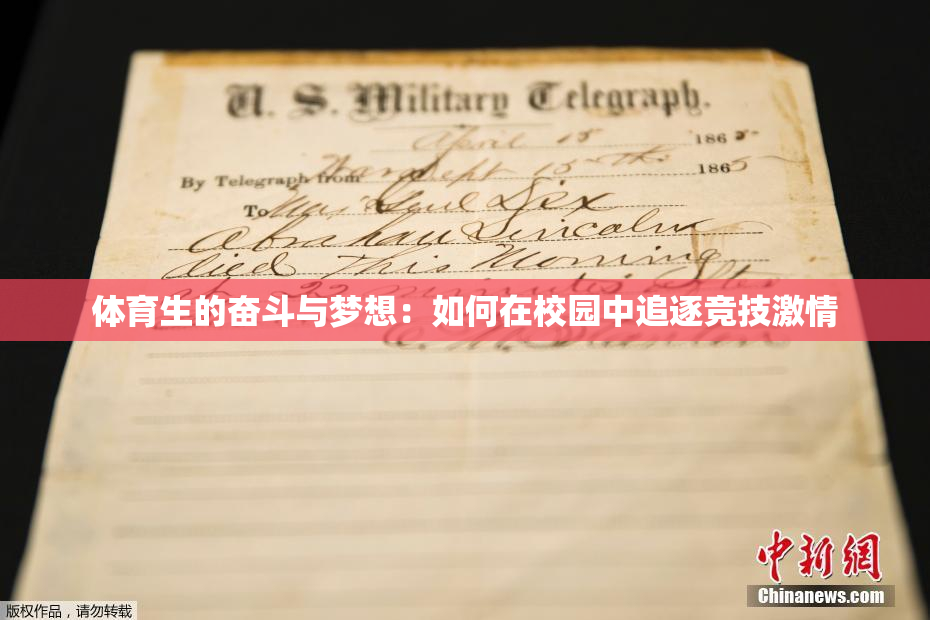 U. S. Military Telegraph.
April 15 1865
By Telegraph from War Dept 15th 1865
To Maj Genl Dix
Abraham Lincoln
died This Morning
at 22 minutes after
体育生的奋斗与梦想：如何在校园中追逐竞技激情
E. M. Stanton
中新网
Chinanews.com
版权作品，请勿转载